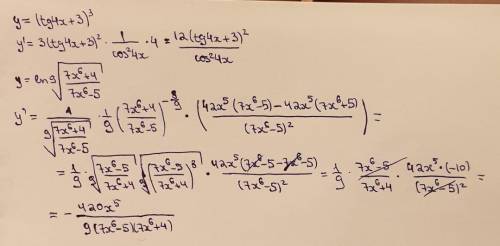 y = (tg4x+3)³
y' = 3(tg4x+3)² · 1/cos²4x · 4 = 12(tg4x+3)²/cos²4x
y = ln ⁹√((7x⁶+4)/(7x⁶-5))
y' = 1/⁹√((7x⁶+4)/(7x⁶-5)) · 1/9 ((7x⁶+4)/(7x⁶-5))^(-8/9) · (42x⁵(7x⁶-5)-42x⁵(7x⁶+5)/(7x⁶-5)²) =
= 1/9 · ⁹√((7x⁶-5)/(7x⁶+4)) ⁹√((7x⁶-5)/(7x⁶+4))⁸ · 42x⁵(7x⁶-5-7x⁶-5)/(7x⁶-5)² = 1/9 · (7x⁶-5)/(7x⁶+4) · 42x⁵·(-10)/(7x⁶-5)² =
= - 420x⁵/9(7x⁶-5)(7x⁶+4)